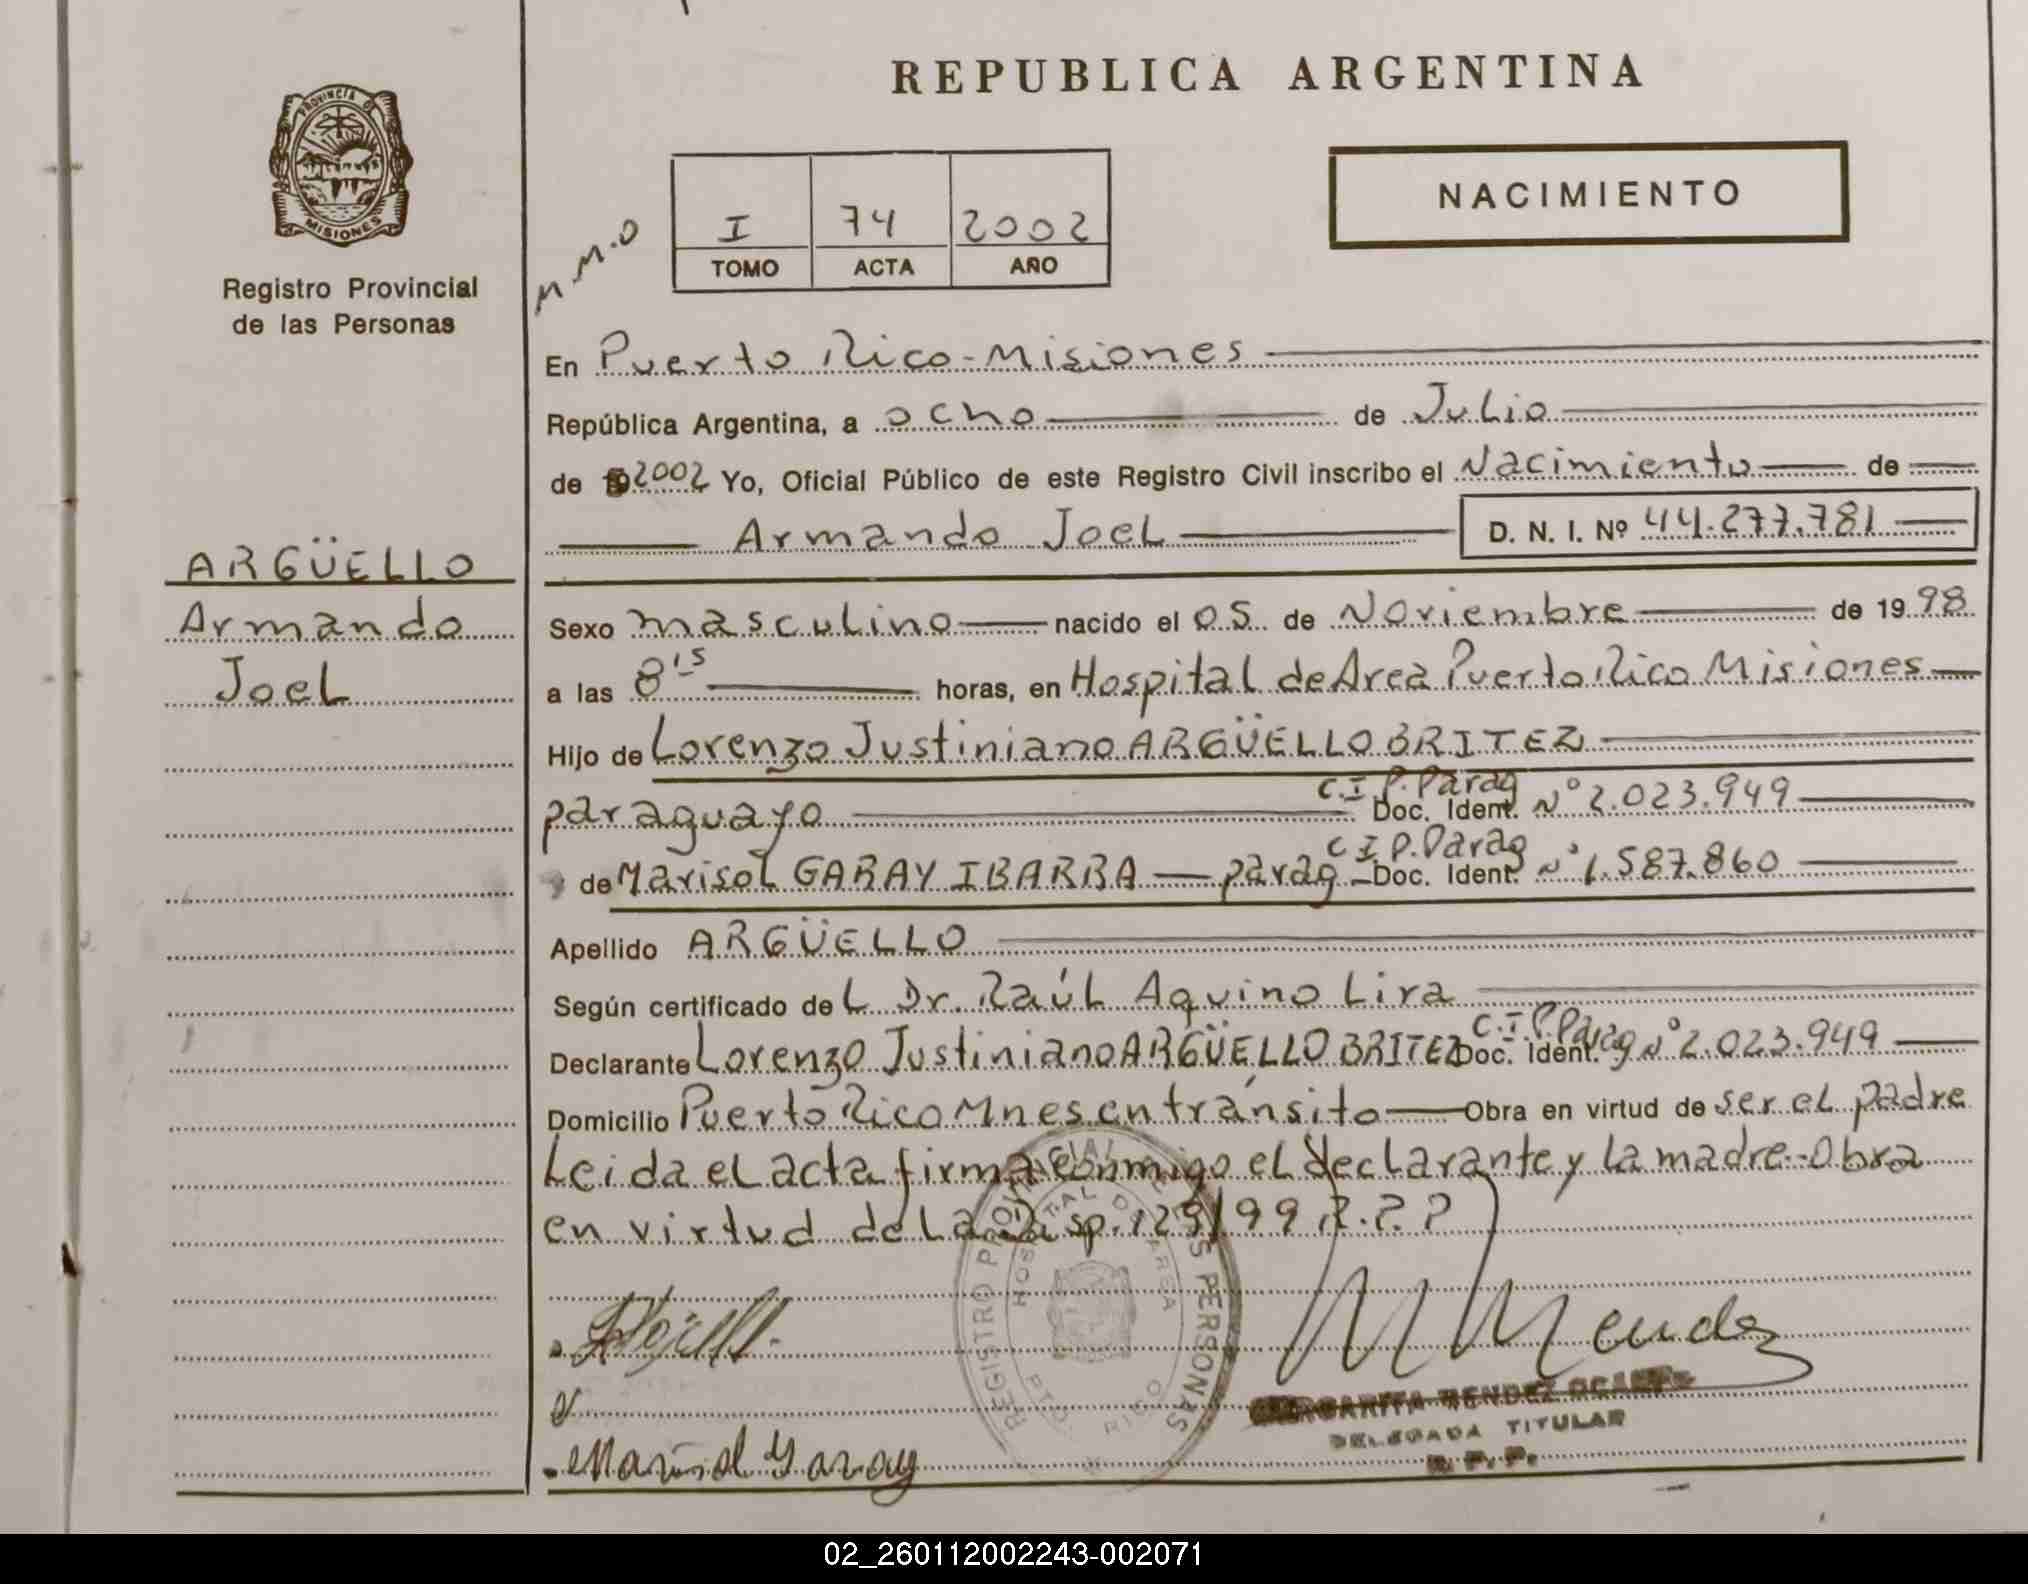 REPUBLICA ARGENTINA
PROVINCIA D
MISIONES
Registro Provincial
de las Personas
M.M.O
I 74 2002
TOMO ACTA AÑO
NACIMIENTO
En Puerto Rico-Misiones
República Argentina, a ocho de Julio
de 2002 Yo, Oficial Público de este Registro Civil inscribo el Nacimiento de
Armando Joel D. N. I. Nº 44.277.781
ARGÜELLO
Armando
Joel
Sexo masculino nacido el 05 de Noviembre de 1998
a las 8'15 horas, en Hospital de Area Puerto Rico Misiones
Hijo de Lorenzo Justiniano ARGÜELLO BRITEZ
C.I.P. Parag
paraguayo Doc. Ident. Nº 2.023.949
C I P. Parag
y de Marisol GARAY IBARRA - parag - Doc. Ident. Nº 1.587.860
Apellido ARGÜELLO
Según certificado del Dr. Raúl Aquino Lira
C.I.P. Parag
Declarante Lorenzo Justiniano ARGÜELLO BRITEZ Doc. Ident. Nº 2.023.949
Domicilio Puerto Rico Mnes en tránsito Obra en virtud de ser el padre
Leida el acta firma conmigo el declarante y la madre.-Obra
en virtud de la Disp. 129/99 R.P.P
REGISTRO PROVINCIAL DE LAS PERSONAS
HOSPITAL DE AREA
PTO. RICO
M Mendez
MARGARITA MENDEZ OCAMPO
DELEGADA TITULAR
R. P. P.
Marisol Garay
02_260112002243-002071